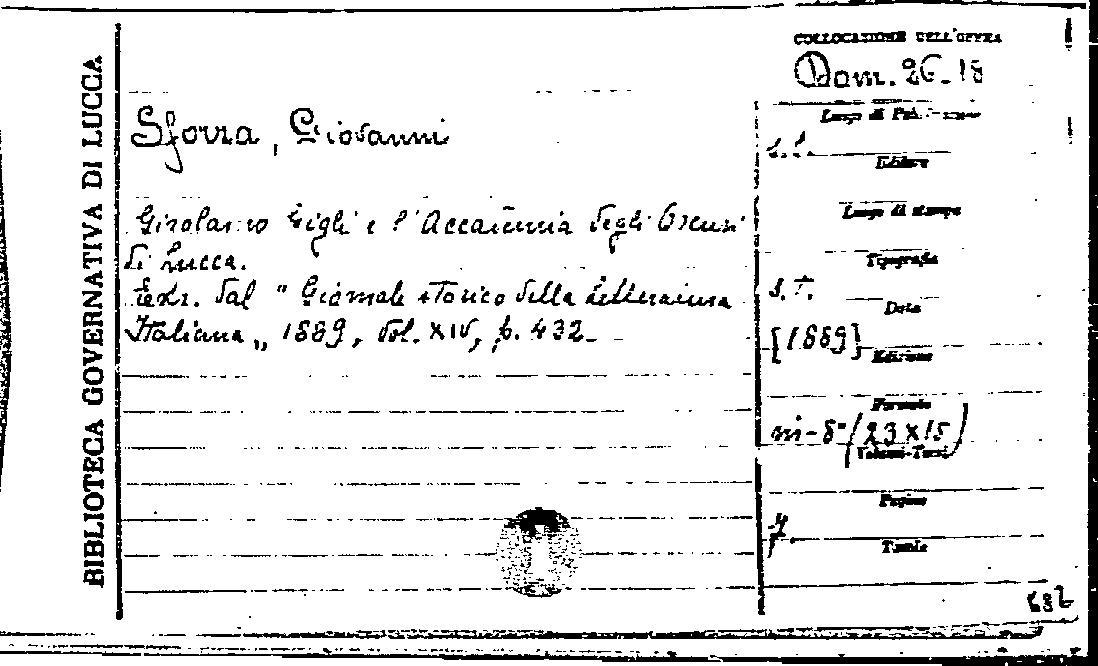 BIBLIOTECA GOVERNATIVA DI LUCCA
COLLOCAZIONE DELL'OPERA
Dom. 26.18
Sforza, Giovanni
Girolamo Gigli e l'Accademia degli Oscuri
di Lucca.
Estr. dal "Giornale storico della Letteratura
Italiana„ 1889, vol. XIV, p. 432.
Luogo di
s.l.
Editore
Luogo di stampa
Tipografia
s.t.
Data
[1889]
Edizione
Formato
in-8° (23 x 15)
Volumi-Tomi
Pagine
Tavole